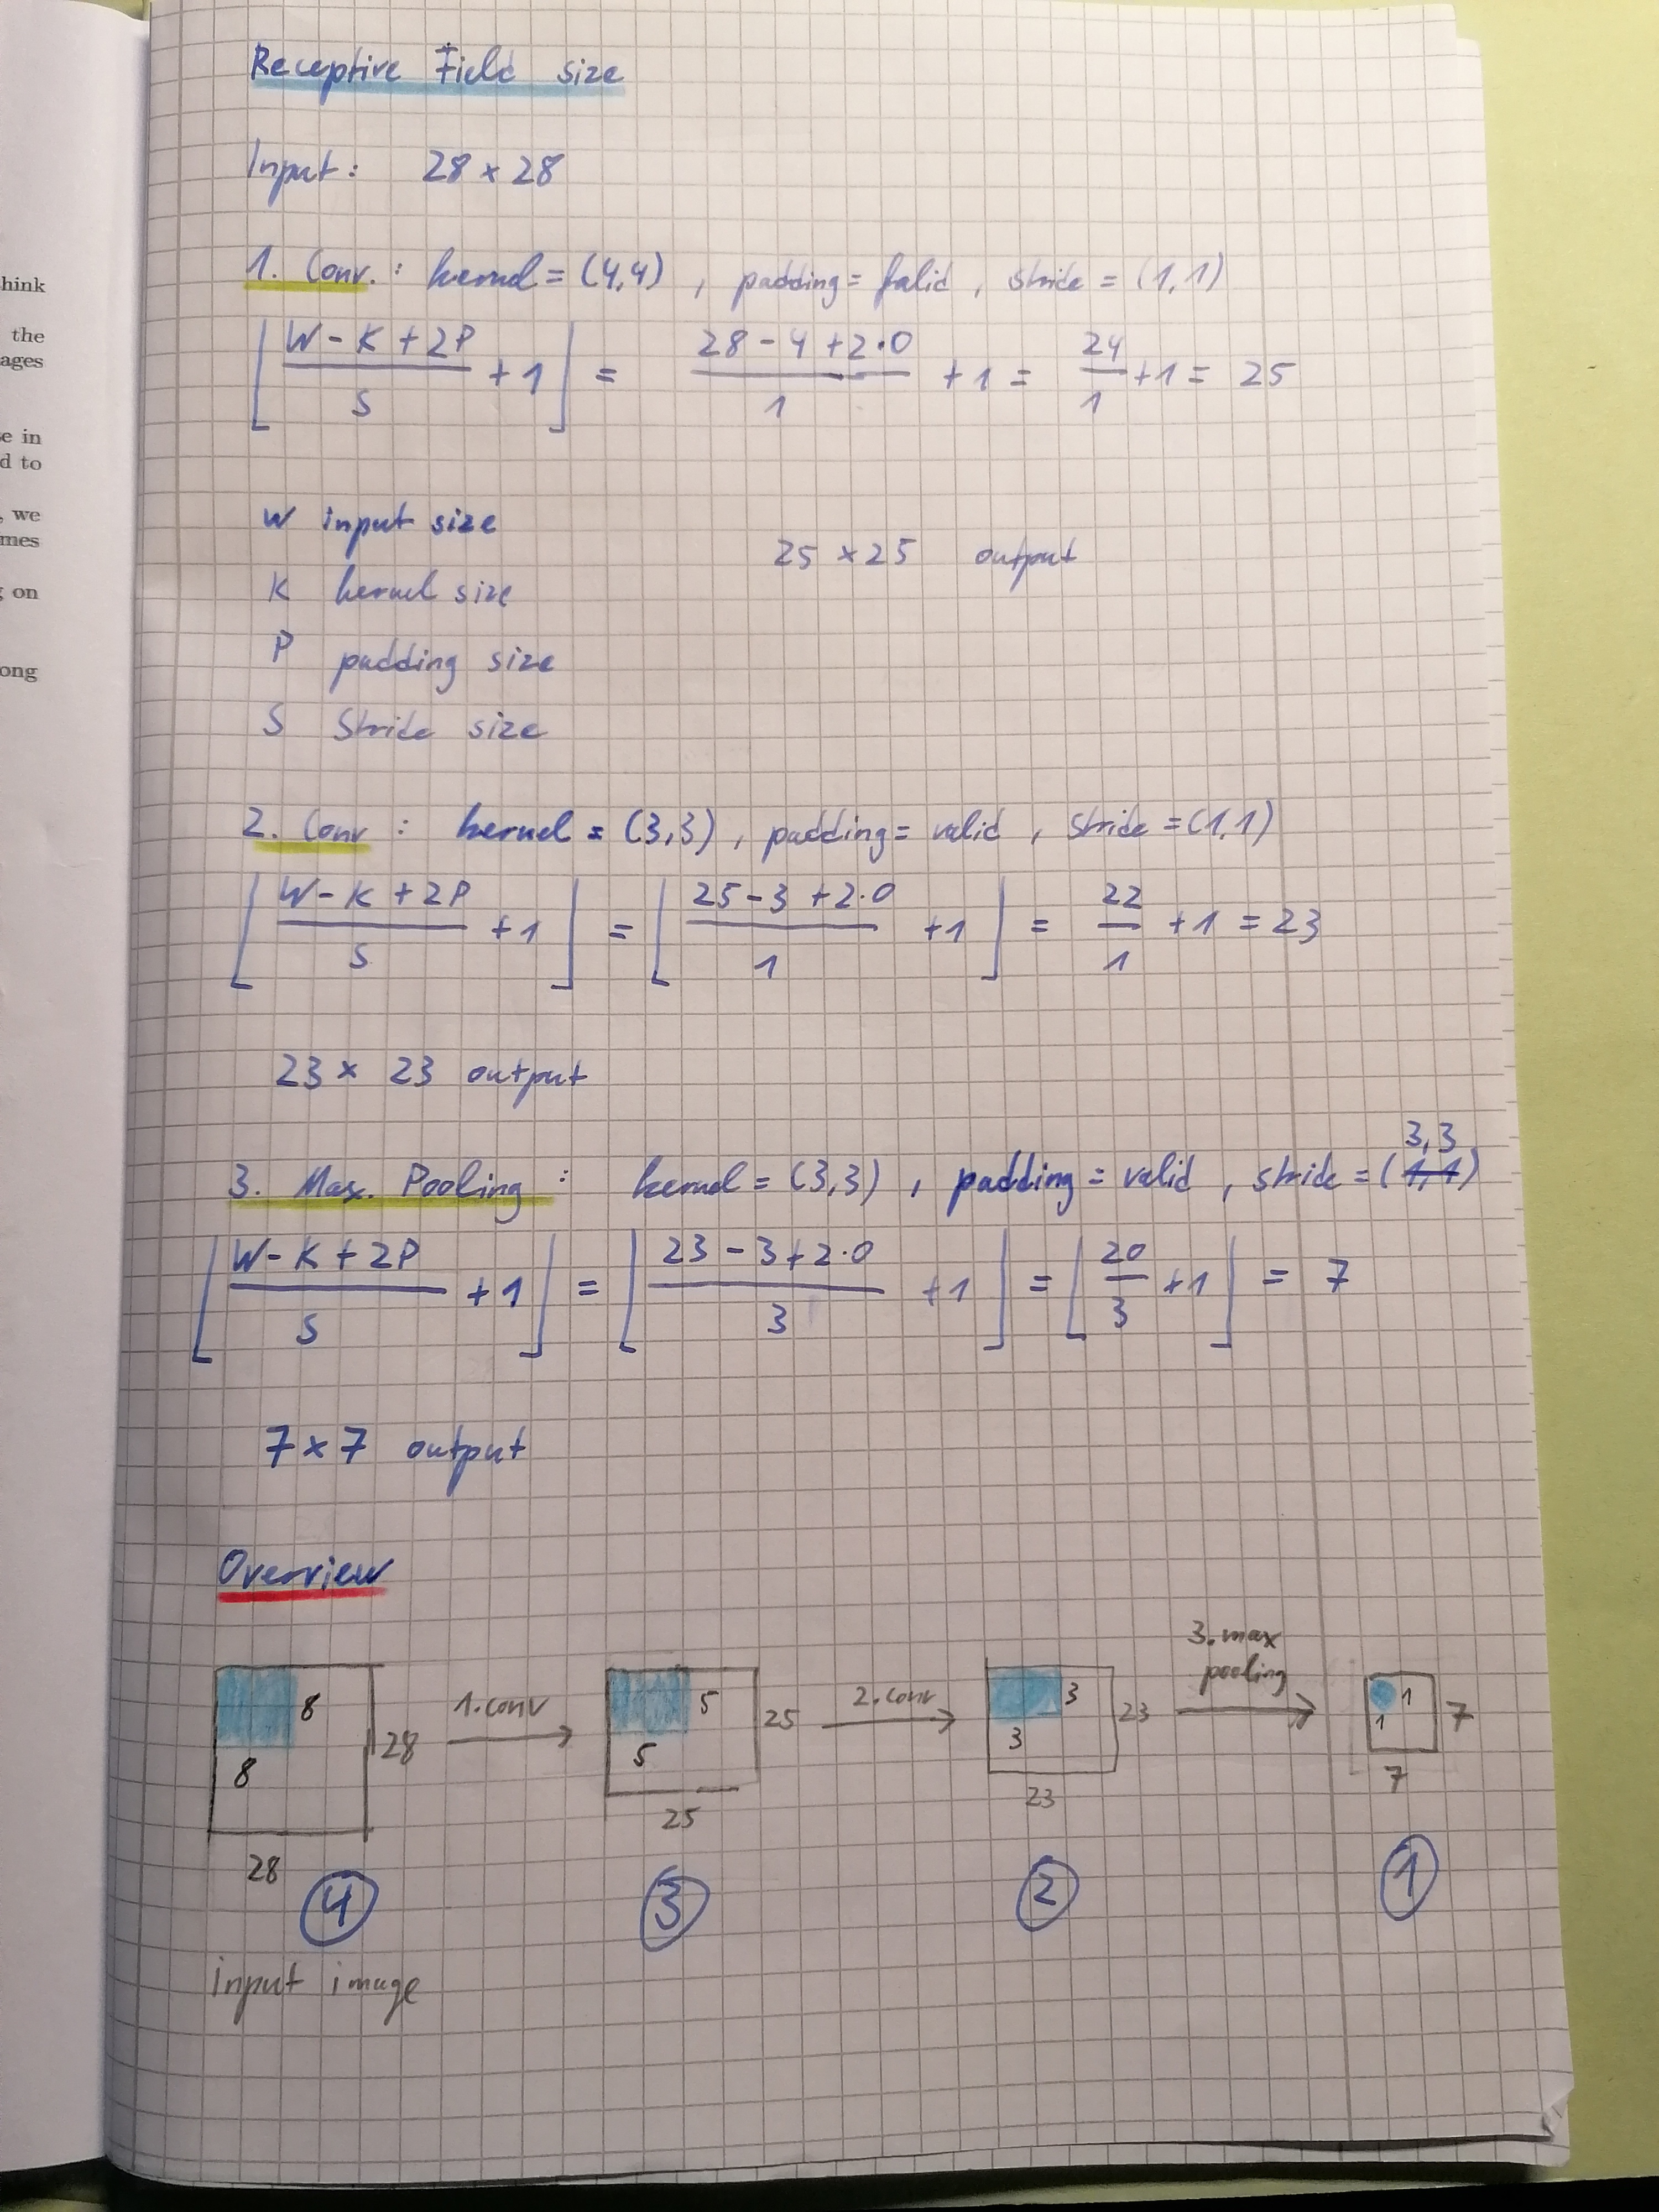 hink
the
ages
e in
d to
, we
mes
g on
ong
Receptive Field size
Input: 28 × 28
1. Conv. : kernel = (4,4) , padding = falid , stride = (1,1)
⌊(W - K + 2P)/S + 1⌋ = (28 - 4 + 2·0)/1 + 1 = 24/1 + 1 = 25
W input size
25 × 25 output
K kernel size
P padding size
S Stride size
2. Conv : kernel = (3,3) , padding = valid , stride = (1,1)
⌊(W - K + 2P)/S + 1⌋ = ⌊(25 - 3 + 2·0)/1 + 1⌋ = 22/1 + 1 = 23
23 × 23 output
3. Max. Pooling : kernel = (3,3) , padding = valid , stride = (3,3)
⌊(W - K + 2P)/S + 1⌋ = ⌊(23 - 3 + 2·0)/3 + 1⌋ = ⌊20/3 + 1⌋ = 7
7 × 7 output
Overview
8 8 28 28
1. conv
5 5 25 25
2. conv
3 3 23 23
3. max
pooling
1 1 7 7
4 3 2 1
input image